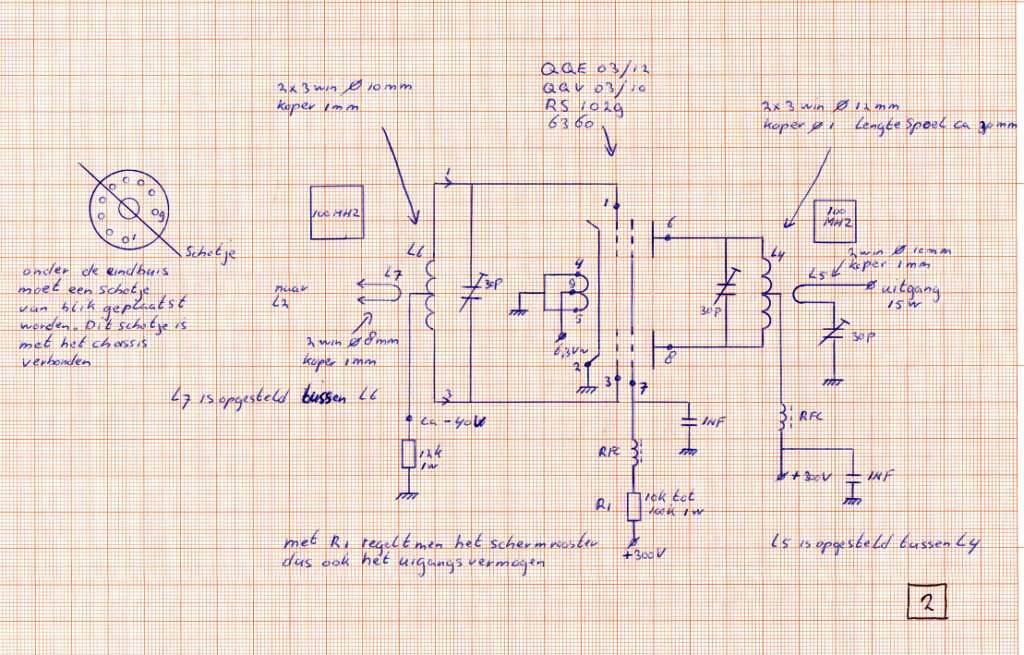 QQE 03/12
QQV 03/10
RS 1029
6360
2x3 win Ø 10mm
koper 1mm
2x3 win Ø 12mm
koper Ø 1 lengte spoel ca 30mm
100 MHZ
100
MHZ
g
1
Schotje
onder de eindbuis
moet een schotje
van blik geplaatst
worden. Dit schotje is
met het chassis
verbonden
naar
L2
L7
L6
2 win Ø 8mm
koper 1mm
L7 is opgesteld tussen L6
1
3
30P
ca -40V
12k
1w
1
4
9
5
6,3V~
2
3
7
6
8
30P
L4
L5
2 win Ø 10mm
koper 1mm
uitgang
15w
30P
1NF
RFC
R1
10k tot
100k 1w
+300V
RFC
+300V
1NF
met R1 regelt men het schermrooster
dus ook het uigangsvermogen
L5 is opgesteld tussen L4
2